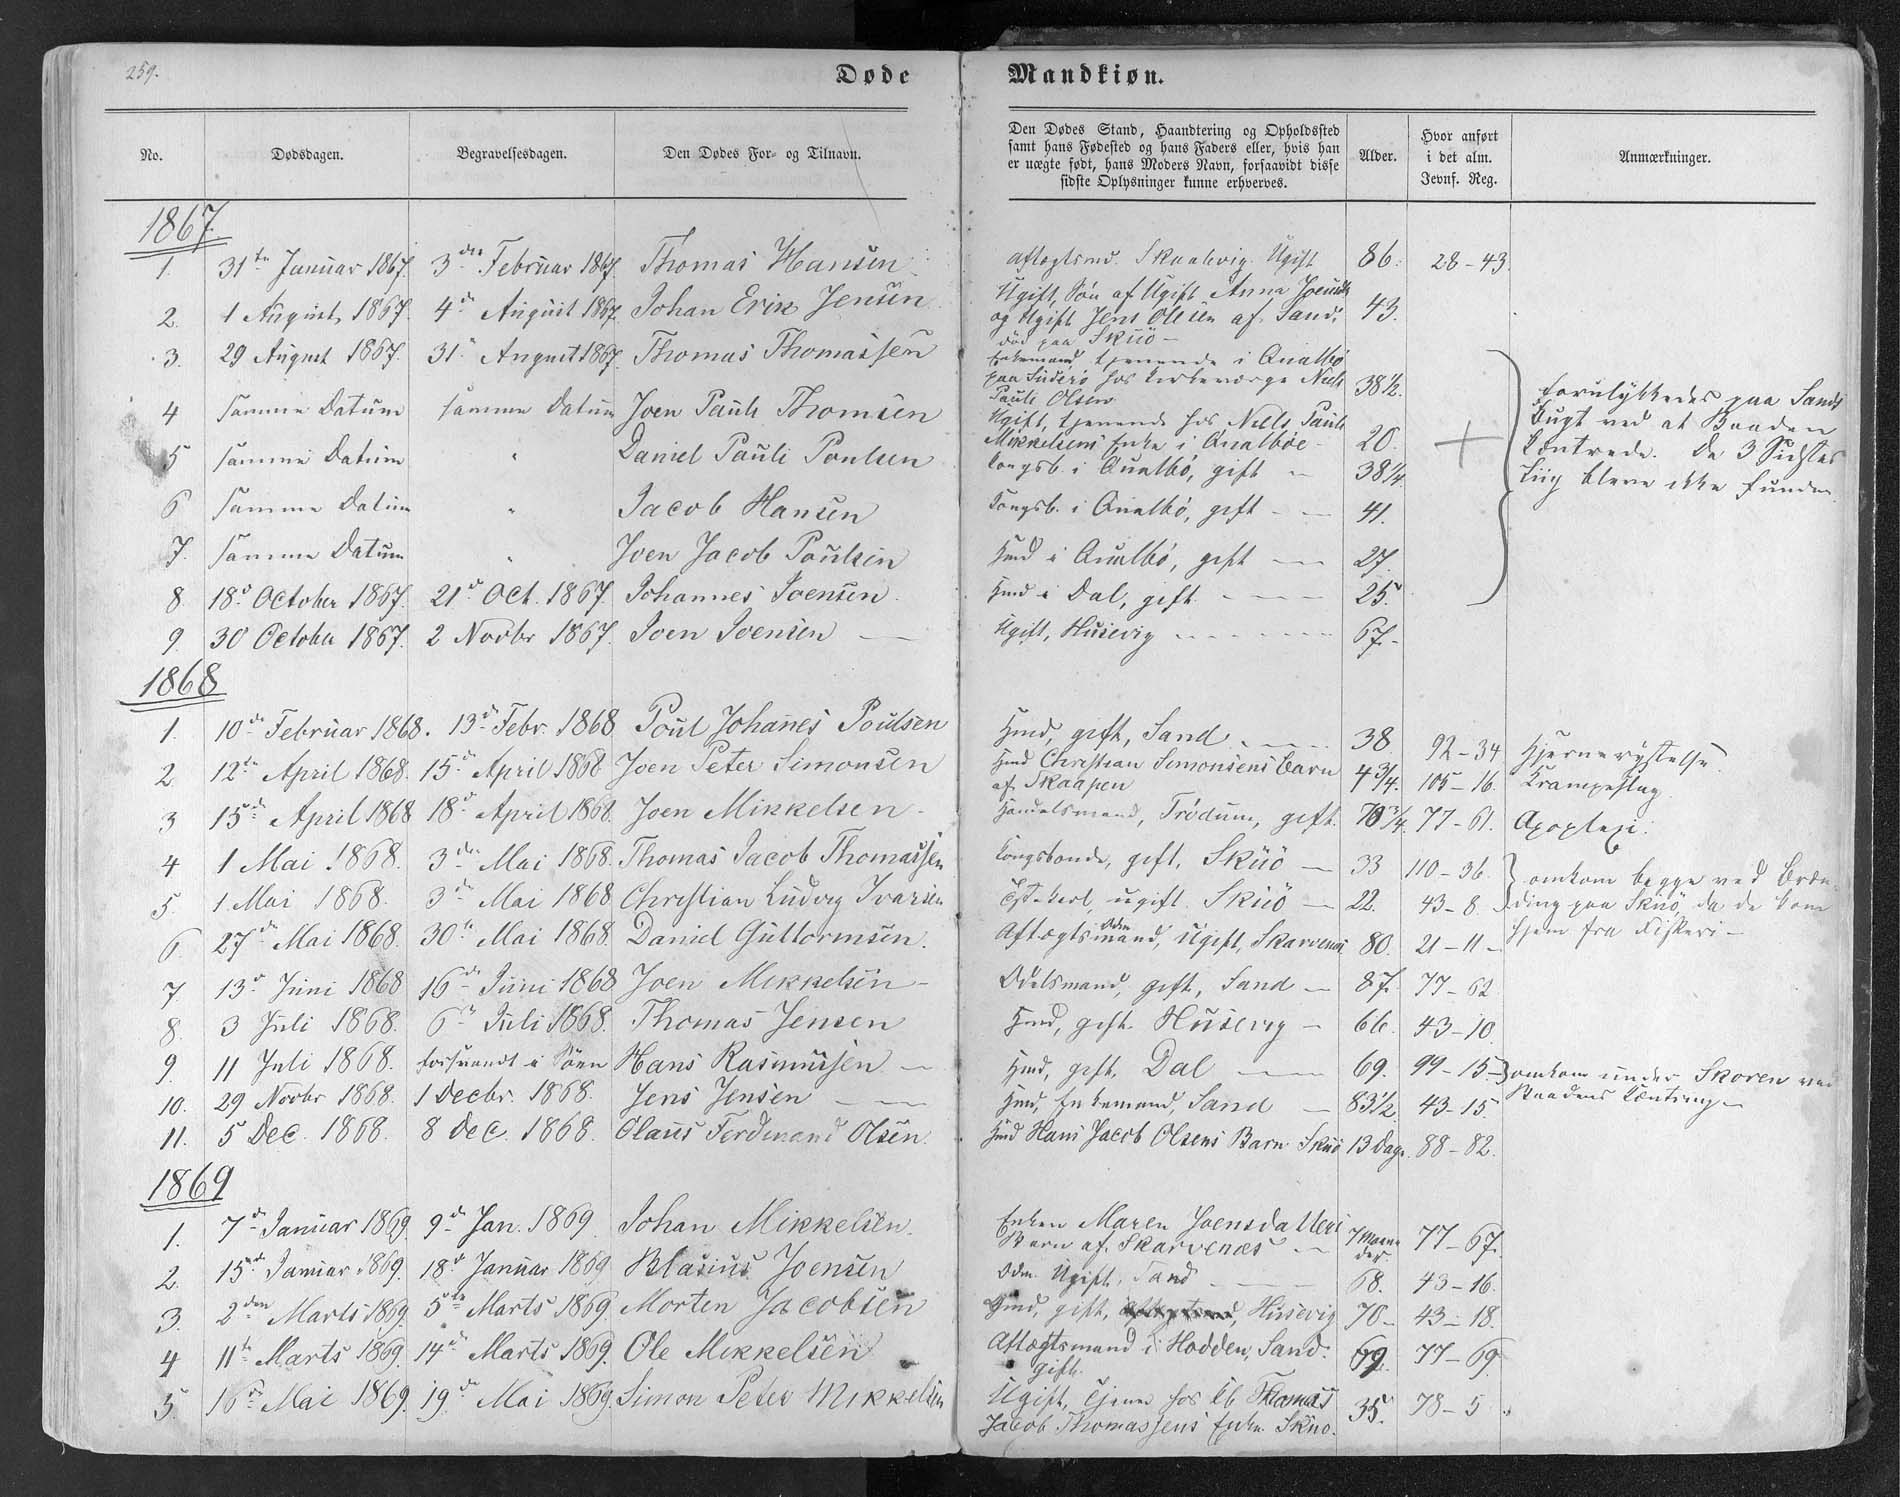 259.
Døde
Mandkiøn.
No.
Dødsdagen.
Begravelsesdagen.
Den Dødes For- og Tilnavn.
Den Dødes Stand, Haandtering og Opholdssted
samt hans Fødested og hans Faders eller, hvis han
er uægte født, hans Moders Navn, forsaavidt disse
sidste Oplysninger kunne erhverves.
Alder.
Hvor anført
i det alm.
Jevnf. Reg.
Anmærkninger.
1867.
1. 31te Januar 1867. 3die Februar 1867. Thomas Hansen. Aftægtsmd. Skaalevig. Ugift 86. 28-43.
2. 1 August 1867. 4de August 1867. Johan Erik Jensen Ugift, Søn af Ugift Anna
og Ugift Jens Olesen af Sand, 43.
død paa Skuö -
3. 29 August 1867. 31. August 1867. Thomas Thomassen Enkemand, tjenende i Qualbö
paa Suderö hos Kirkeværge Niels 38 1/2.
Pauli Olsen
4 samme Datum samme Datum Joen Pauli Thomsen Ugift, tjenende hos Niels Pauli
Mikkelsens Enke i Qualböe - 20.
5 samme Datum " Daniel Pauli Poulsen Kongsb. i Qualbö, gift - 38 1/4.
6 samme Datum " Jacob Hansen Kongsb. i Qualbö, gift - - 41.
7. samme Datum " Joen Jacob Poulsen Hmd i Qualbö, gift - 27.
8. 18d October 1867. 21d Oct. 1867. Johannes Joensen. Hmd i Dal, gift - - - 25.
forulykkedes paa Sands
Bugt ved at Baaden
kæntrede. De 3 Sidstes
Liig bleve ikke funden.
9. 30 October 1867. 2 Novbr 1867. Joen Joensen - Ugift, Husevig - - - 67.
1868
1. 10de Februar 1868. 13d Febr. 1868 Poul Johanes Poulsen Hmd, gift, Sand - - 38 92-34 Hjernerystelse.
2 12te April 1868. 15de April 1868 Joen Peter Simonsen Hmd Christian Simonsens Barn
af Skaapen 4 3/4. 105-16. Krampeslag
3 15de April 1868 18d April 1868. Joen Mikkelsen - Handelsmand, Trödum, gift. 70 3/4. 77-61. Apoplexi.
4 1 Mai 1868. 3die Mai 1868. Thomas Jacob Thomassen Kongsbonde, gift, Skuö - 33 110-36.
5. 1. Mai 1868. 3die Mai 1868 Christian Ludvig Ivarsen ugift. Skuö - 22. 43-8.
omkom begge ved Bræn-
ding paa Skuö, da de kom
hjem fra Fiskeri -
6. 27de Mai 1868. 30te Mai 1868. Daniel Guttormsen. Aftægtsmand, Odm ugift, Skarvenes 80. 21-11-
7 13d Juni 1868 16de Juni 1868 Joen Mikkelsen - Odelsmand, gift, Sand - 87. 77-62
8. 3 Juli 1868. 6te Juli 1868. Thomas Jensen Hmd, gift. Husevig - 66. 43-10.
9. 11 Juli 1868. forsvandt i Söen Hans Rasmussen - Hmd, gift, Dal - 69. 99-15- omkom under Skoren ved
Baadens Kæntring -
10. 29 Novbr 1868. 1 Decbr. 1868. Jens Jensen - - Hmd, Enkemand, Sand - 83 1/2 43-15.
11. 5 Dec. 1868. 8 Dec. 1868. Olaus Ferdinand Olsen. Hmd Hans Jacob Olsens Barn Skuö 13 Dage. 88-82.
1869
1. 7de Januar 1869. 9de Jan. 1869. Johan Mikkelsen. Enken Maren Joensdatters
Barn af Skarvenæs - 7 Maane
der. 77-67.
2. 15de Januar 1869. 18d Januar 1869 Blasius Joensen Odm. Ugift, Sand - - 68. 43-16.
3. 2den Marts 1869. 5te Marts 1869. Morten Jacobsen Hmd, gift, Husevig 70- 43-18.
4 11te Marts 1869. 14de Marts 1869. Ole Mikkelsen Aftægtsmand i Hodden, Sand. 69. 77-69.
gift.
5. 16de Mai 1869. 19de Mai 1869. Simon Peter Mikkelsen Ugift, tjener hos Kb Thomas
Jacob Thomassens Enke. Skuo. 35. 78-5.